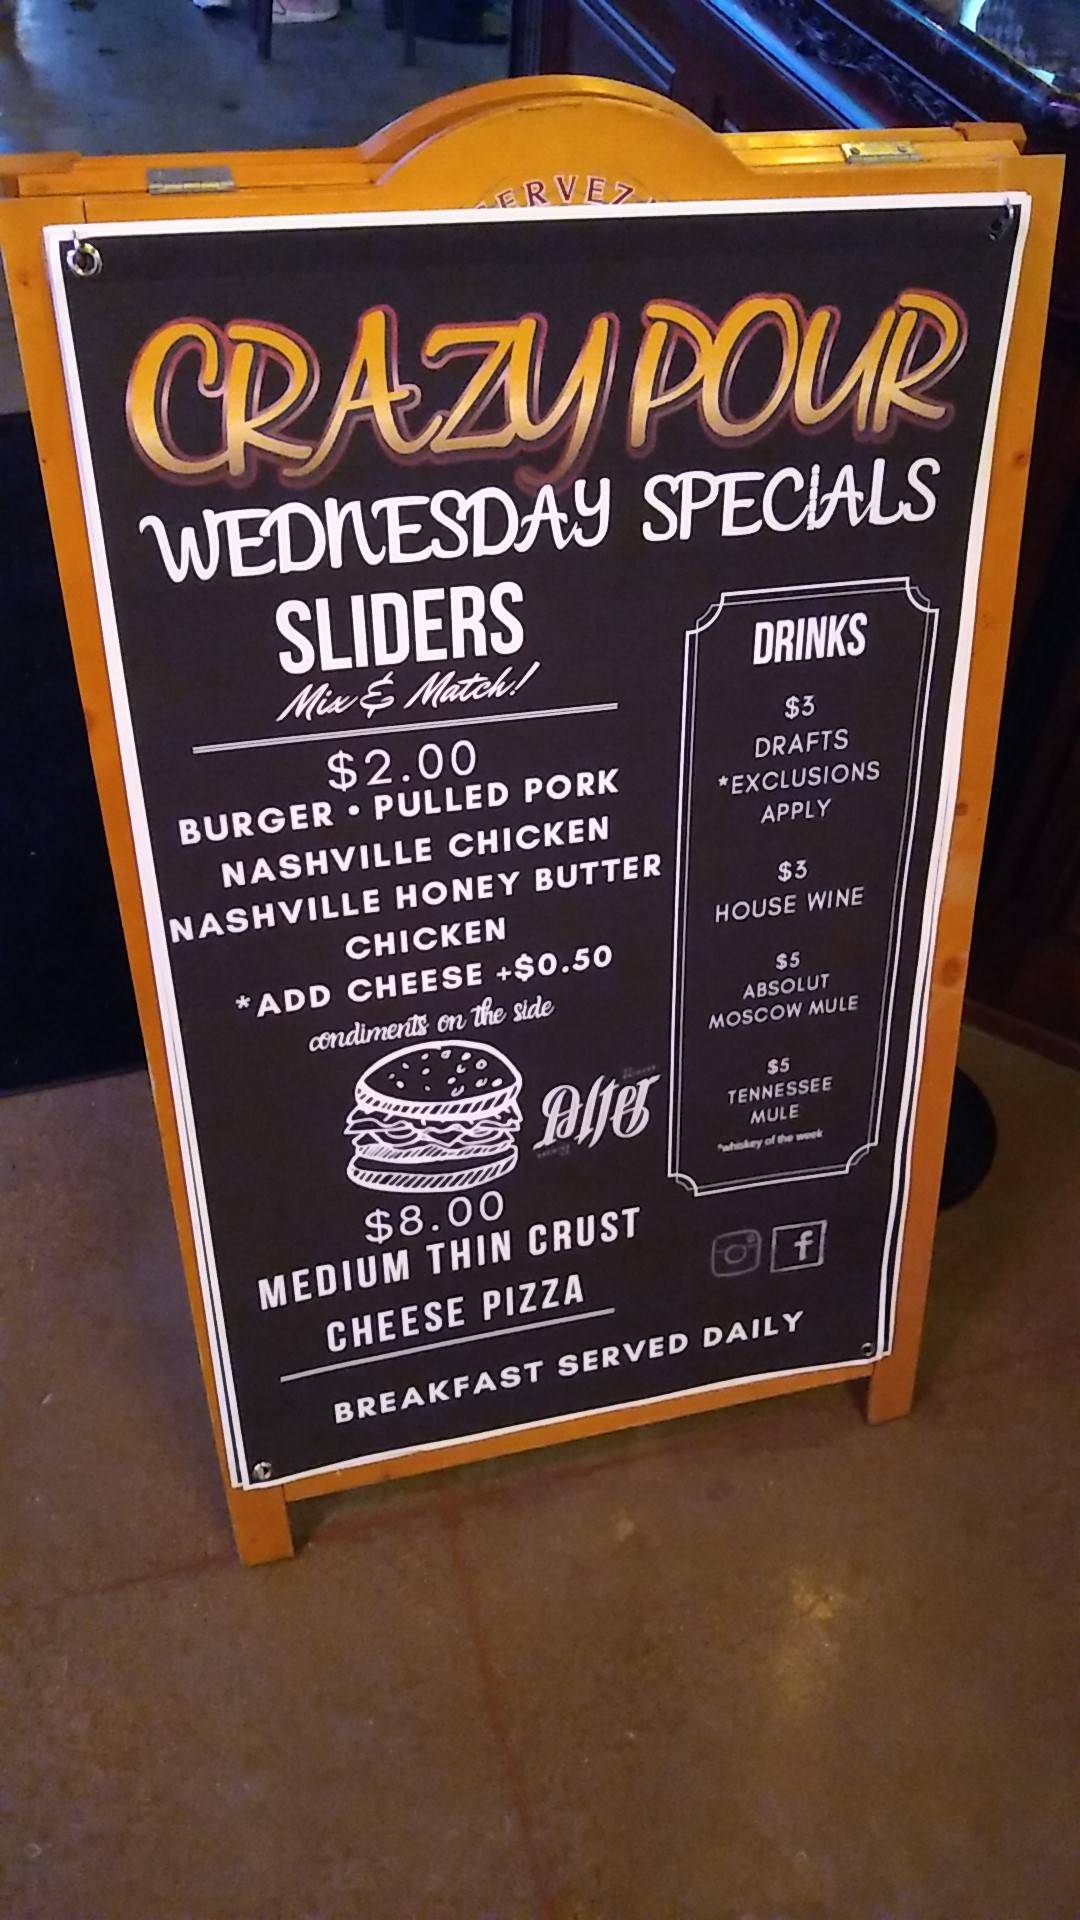 CRAZY POUR
WEDNESDAY SPECIALS
SLIDERS
Mix & Match!
$2.00
BURGER • PULLED PORK
NASHVILLE CHICKEN
NASHVILLE HONEY BUTTER
CHICKEN
*ADD CHEESE +$0.50
condiments on the side
Alter
$8.00
MEDIUM THIN CRUST
CHEESE PIZZA
BREAKFAST SERVED DAILY
DRINKS
$3
DRAFTS
*EXCLUSIONS
APPLY
$3
HOUSE WINE
$5
ABSOLUT
MOSCOW MULE
$5
TENNESSEE
MULE
*whiskey of the week
f